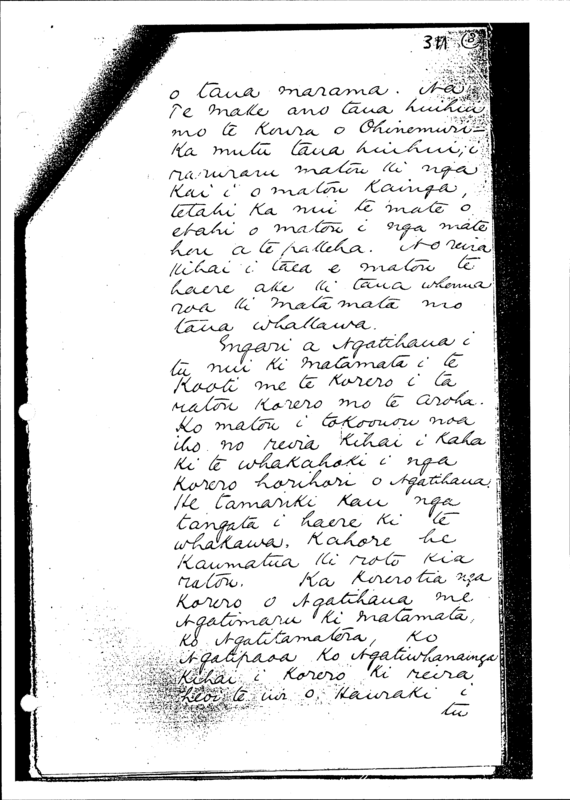 311 (8)
o taua marama. Na
Te Make ano taua huihui
mo te Koura o Ohinemuri -
Ka mutu taua huihui, i
raruraru matou ki nga
Kai i o matou Kainga,
tetahi Ka nui te mate o
etahi o matou i nga mate
hou a te pakeha. No reira
Kihai i taea e matou te
haere ake ki taua whenua
roa ki Matamata mo
taua whakawa.
Engari a Ngatihaua i
tu nui Ki Matamata i te
Kooti me te Korero i ta
ratou Korero mo te Aroha.
Ko matou i tokoouou noa
iho no reira Kihai i Kaha
Ki te whakahoki i nga
Korero horihori o Ngatihaua.
He tamariki Kau nga
tangata i haere Ki te
whakawa. Kahore he
Kaumatua Ki roto Kia
ratou. Ka Korerotia nga
Korero o Ngatihaua me
Ngatimaru Ki Matamata,
Ko Ngatitamatera, Ko
Ngatipaoa Ko Ngatiwhanaunga
Kihai i Korero Ki reira
heoi te iwi o Hauraki i
tu